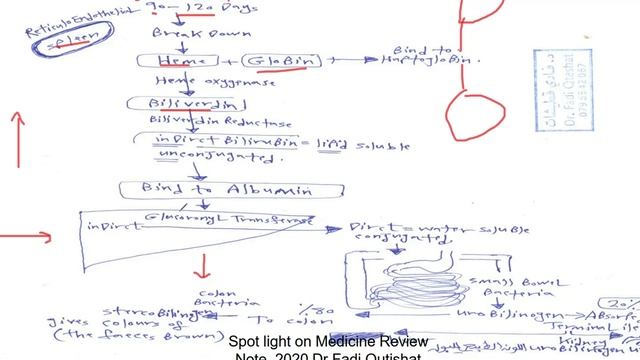 90 - 120 Days
ReticuloEndothelial
spleen
Break Down
Heme + Globin
Bind to
Haptoglobin.
Heme oxygenase
Biliverdin
Biliverdin Reductase
inDirect BiliruBin = lipid soluble
unconjugated.
Bind to Albumin
Glucoronyl Transferase
inDirct
Dirct = water soluble
conjugated
small Bowel
Bacteria
colon
Bacteria
%80
20%
stercoBilingen
To colon
uroBilinogen
gives colours of
(the faeces Brown)
Terminal
Kidney
د. فادي قطيشات
Dr. Fadi Qtashat
Spot light on Medicine Review
Note 2020 Dr Fadi Qutishat